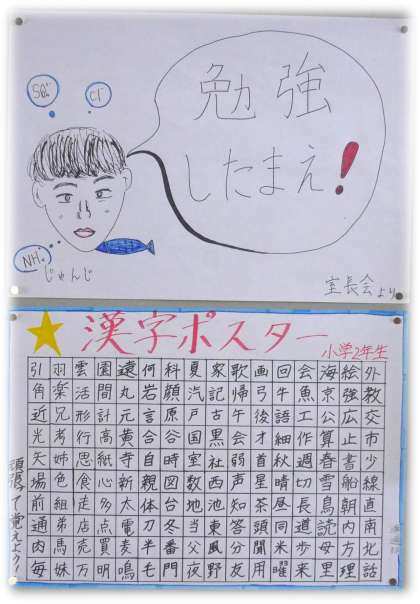 勉強
したまえ！
じゅんじ
室長会より
漢字ポスター
小学2年生
引羽雲園遠何科夏家歌画回会海絵外
角楽活間丸岩顔汽記帰弓牛魚京強教
近兄形計元言原戸古午後語工公広交
光考行高黄合谷国黒今才細作算止市
矢姉思紙寺自時室社弱首秋週春書少
場色食心新親図数西声星晴切雪船線
前組走多太体台地池知茶昼長鳥朝直
通弟店点電刀冬当東答頭同道読内南
肉馬売買麦半番父風分聞米歩母方北
毎妹万明鳴毛門夜野友用曜来里理話
頑張って覚えよう！